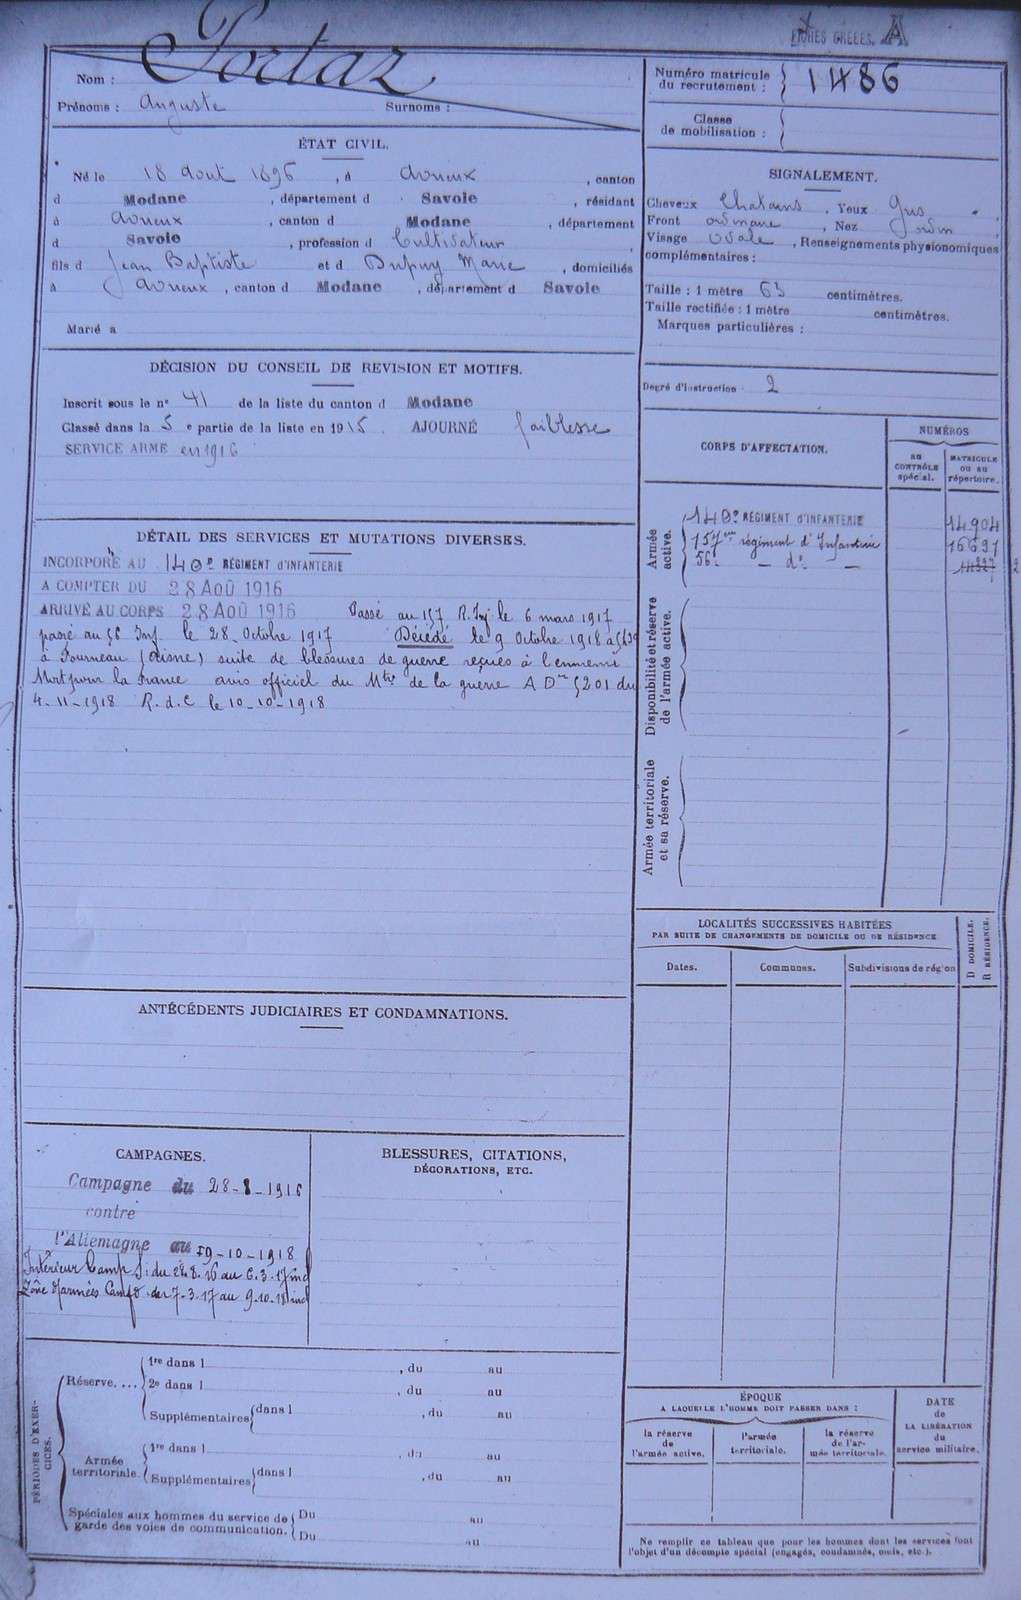 FICHES CRÉÉES. A
Nom : Portaz
Prénoms : Auguste Surnoms :
Numéro matricule
du recrutement : 1486
Classe
de mobilisation :
ÉTAT CIVIL.
Né le 18 Aout 1896, à Avrieux, canton
d Modane, département d Savoie, résidant
à Avrieux, canton d Modane, département
d Savoie, profession d Cultivateur
fils d Jean Baptiste et d Dupuy Marie, domiciliés
à Avrieux, canton d Modane, département d Savoie
Marié à
SIGNALEMENT.
Cheveux Chatains, Yeux Gris
Front ordinaire, Nez
Visage Ovale, Renseignements physionomiques
complémentaires :
Taille : 1 mètre 63 centimètres.
Taille rectifiée : 1 mètre centimètres.
Marques particulières :
Degré d'instruction 2
DÉCISION DU CONSEIL DE REVISION ET MOTIFS.
Inscrit sous le n° 41 de la liste du canton d Modane
Classé dans la 5 e partie de la liste en 1915. AJOURNÉ faiblesse
SERVICE ARMÉ en 1916
CORPS D'AFFECTATION.
NUMÉROS
au
CONTRÔLE
spécial.
MATRICULE
ou au
répertoire.
Armée
active.
140e RÉGIMENT D'INFANTERIE 14904
157eme régiment d'Infanterie 16697
56e - do -
Disponibilité et réserve
de l'armée active.
Armée territoriale
et sa réserve.
DÉTAIL DES SERVICES ET MUTATIONS DIVERSES.
INCORPORÉ AU 140e RÉGIMENT D'INFANTERIE
A COMPTER DU 28 AOÛ 1916
ARRIVÉ AU CORPS 28 AOÛ 1916 Passé au 157 R. Inf le 6 mars 1917
passé au 56 Inf. le 28 Octobre 1917 Décédé le 9 Octobre 1918 à
à (Aisne) suite de blessures de guerre reçues à l'ennemi
Mort pour la France avis officiel du Mtre de la guerre A D 5201 du
4-11-1918 R.d.C le 10-10-1918
LOCALITÉS SUCCESSIVES HABITÉES
PAR SUITE DE CHANGEMENTS DE DOMICILE OU DE RÉSIDENCE
D DOMICILE.
R RÉSIDENCE.
Dates. Communes. Subdivisions de région
ANTÉCÉDENTS JUDICIAIRES ET CONDAMNATIONS.
CAMPAGNES.
Campagne du 28-8-1916
contre
l'Allemagne au 9-10-1918
Intérieur Camp S: du 28.8.16 au 6.3.17 incl
Zône d'armées Camp D du 7-3.17 au 9.10.18 incl
BLESSURES, CITATIONS,
DÉCORATIONS, ETC.
PÉRIODES D'EXERCICES.
Réserve....
1re dans l , du au
2e dans l , du au
Supplémentaires dans l , du au
du au
Armée
territoriale.
1re dans l du au
Supplémentaires dans l , du au
Spéciales aux hommes du service de
garde des voies de communication.
Du au
Du au
ÉPOQUE
A LAQUELLE L'HOMME DOIT PASSER DANS :
la réserve
de
l'armée active.
l'armée
territoriale.
la réserve
de l'armée territoriale.
DATE
de
LA LIBÉRATION
du
service militaire.
Ne remplir ce tableau que pour les hommes dont les services font
l'objet d'un décompte spécial (engagés, condamnés, omis, etc.).